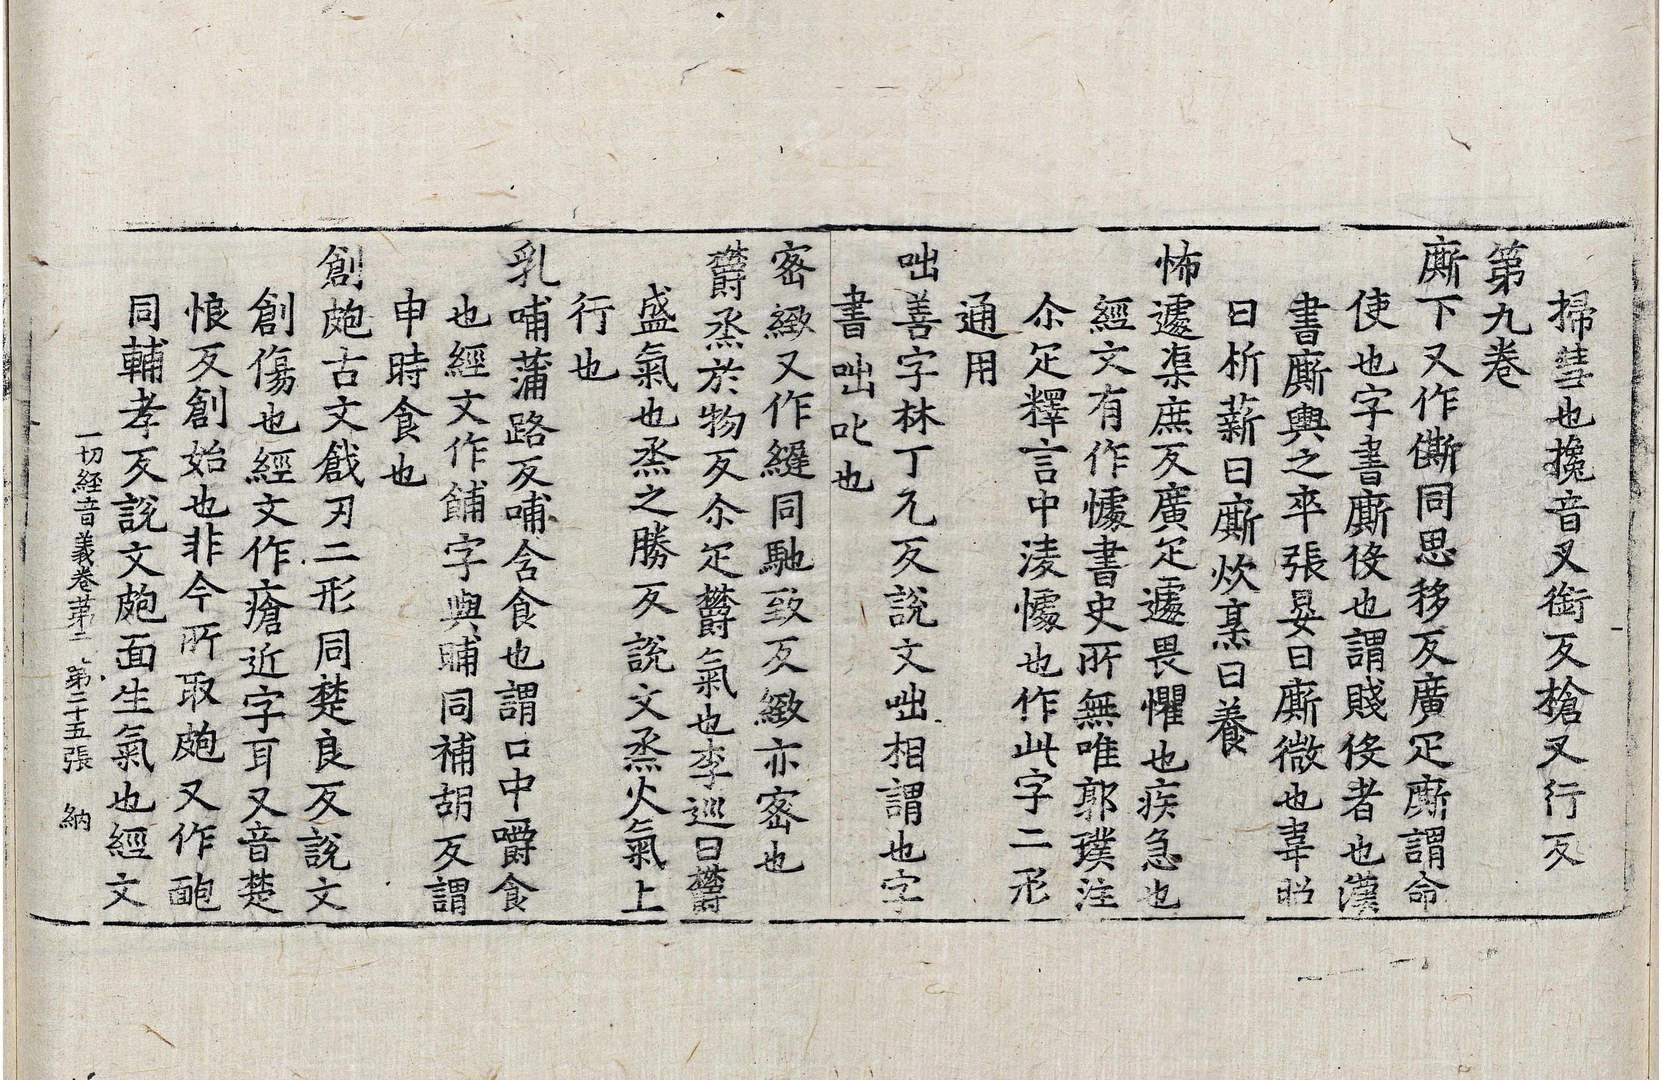 掃彗也攙音叉銜反槍又行反
第九卷
廝下又作㒋同思移反廣疋廝謂命
使也字書廝伇也謂賤伇者也漢
書廝輿之卒張晏曰廝微也韋昭
曰析薪曰廝炊烹曰養
怖遽渠庶反廣疋遽畏懼也疾急也
經文有作懅書史所無唯郭璞注
尒疋釋言中淩懅也作此字二形
通用
咄善字林丁兀反說文咄相謂也字
書咄叱也
密緻又作縫同馳致反緻亦密也
欝烝於物反尒疋欝氣也李巡曰欝
盛氣也烝之勝反說文烝火氣上
行也
乳哺蒲路反哺含食也謂口中嚼食
也經文作餔字與晡同補胡反謂
申時食也
創皰古文戧刃二形同楚良反說文
創傷也經文作瘡近字耳又音楚
恨反創始也非今所取皰又作靤
同輔孝反說文皰面生氣也經文
一切經音義卷第二 第二十五張 納